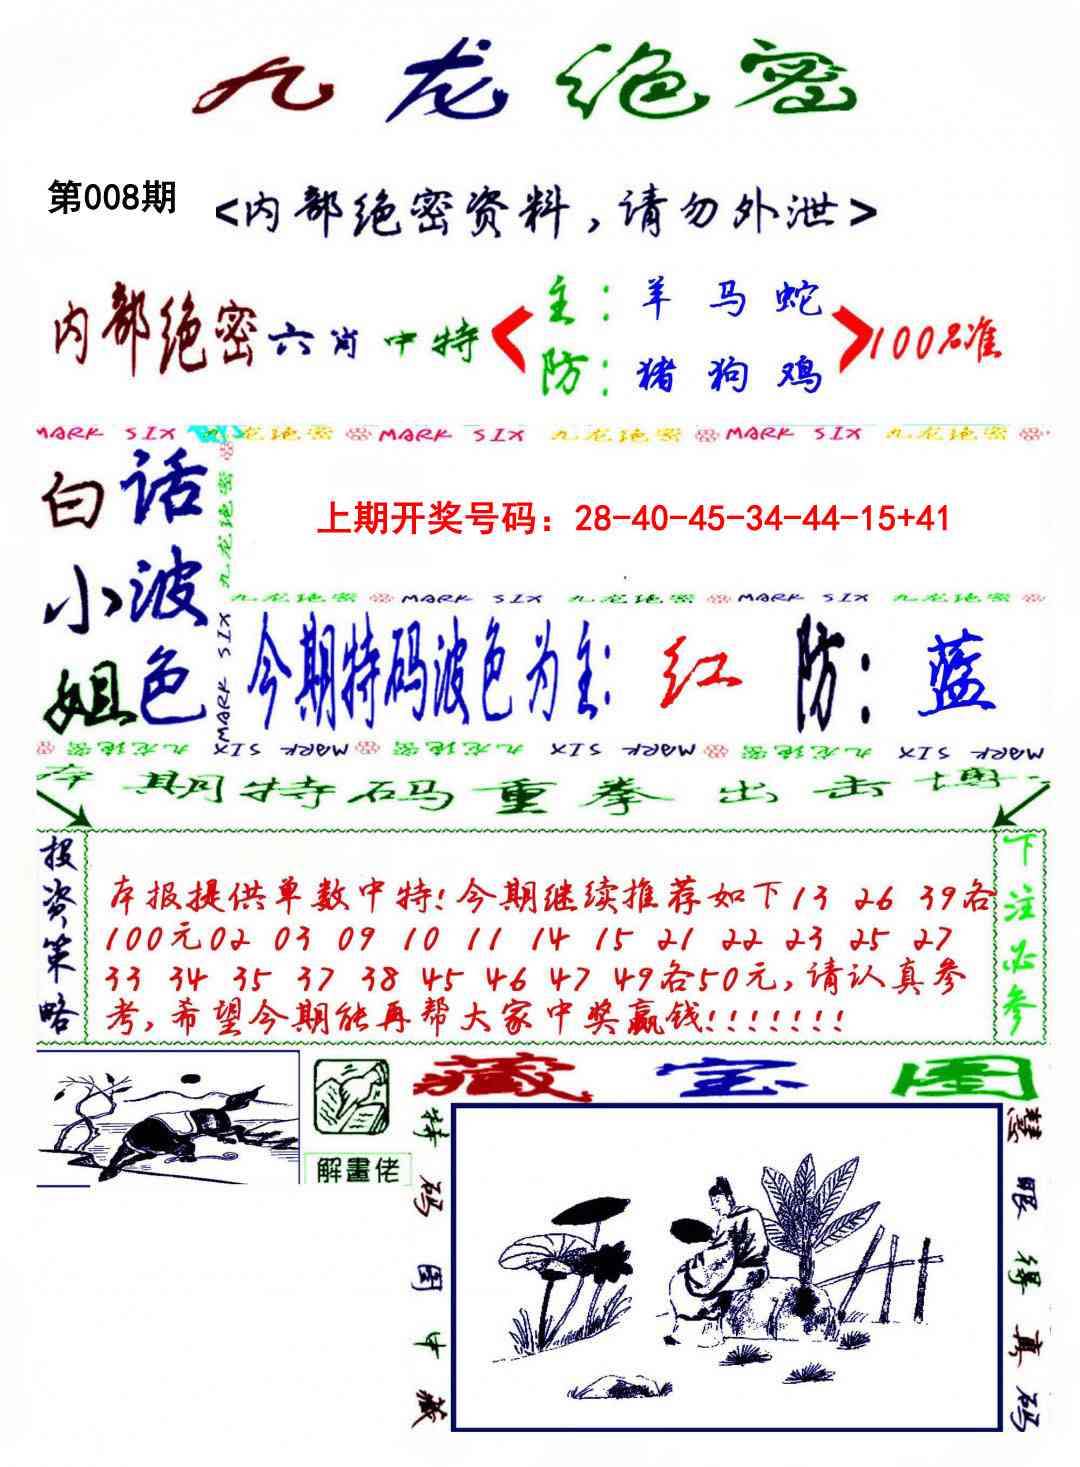 九龙绝密
第008期
<内部绝密资料，请勿外泄>
内部绝密六肖中特
主：羊 马 蛇
防：猪 狗 鸡
100%准
MARK SIX 九龙绝密 MARK SIX 九龙绝密 MARK SIX 九龙绝密
白小姐
话波色
九龙绝密
MARK SIX
上期开奖号码：28-40-45-34-44-15+41
九龙绝密 MARK SIX 九龙绝密 MARK SIX 九龙绝密
今期特码波色为主：红 防：蓝
九龙绝密 MARK SIX 九龙绝密 MARK SIX 九龙绝密 MARK SIX
本期特码重拳出击博
投资策略
本报提供单数中特!今期继续推荐如下13 26 39各
100元02 03 09 10 11 14 15 21 22 23 25 27
33 34 35 37 38 45 46 47 49各50元,请认真参
考,希望今期能再帮大家中奖赢钱!!!!!!!
下注必参
解畫佬
藏宝图
特码图中藏
慧眼得真码